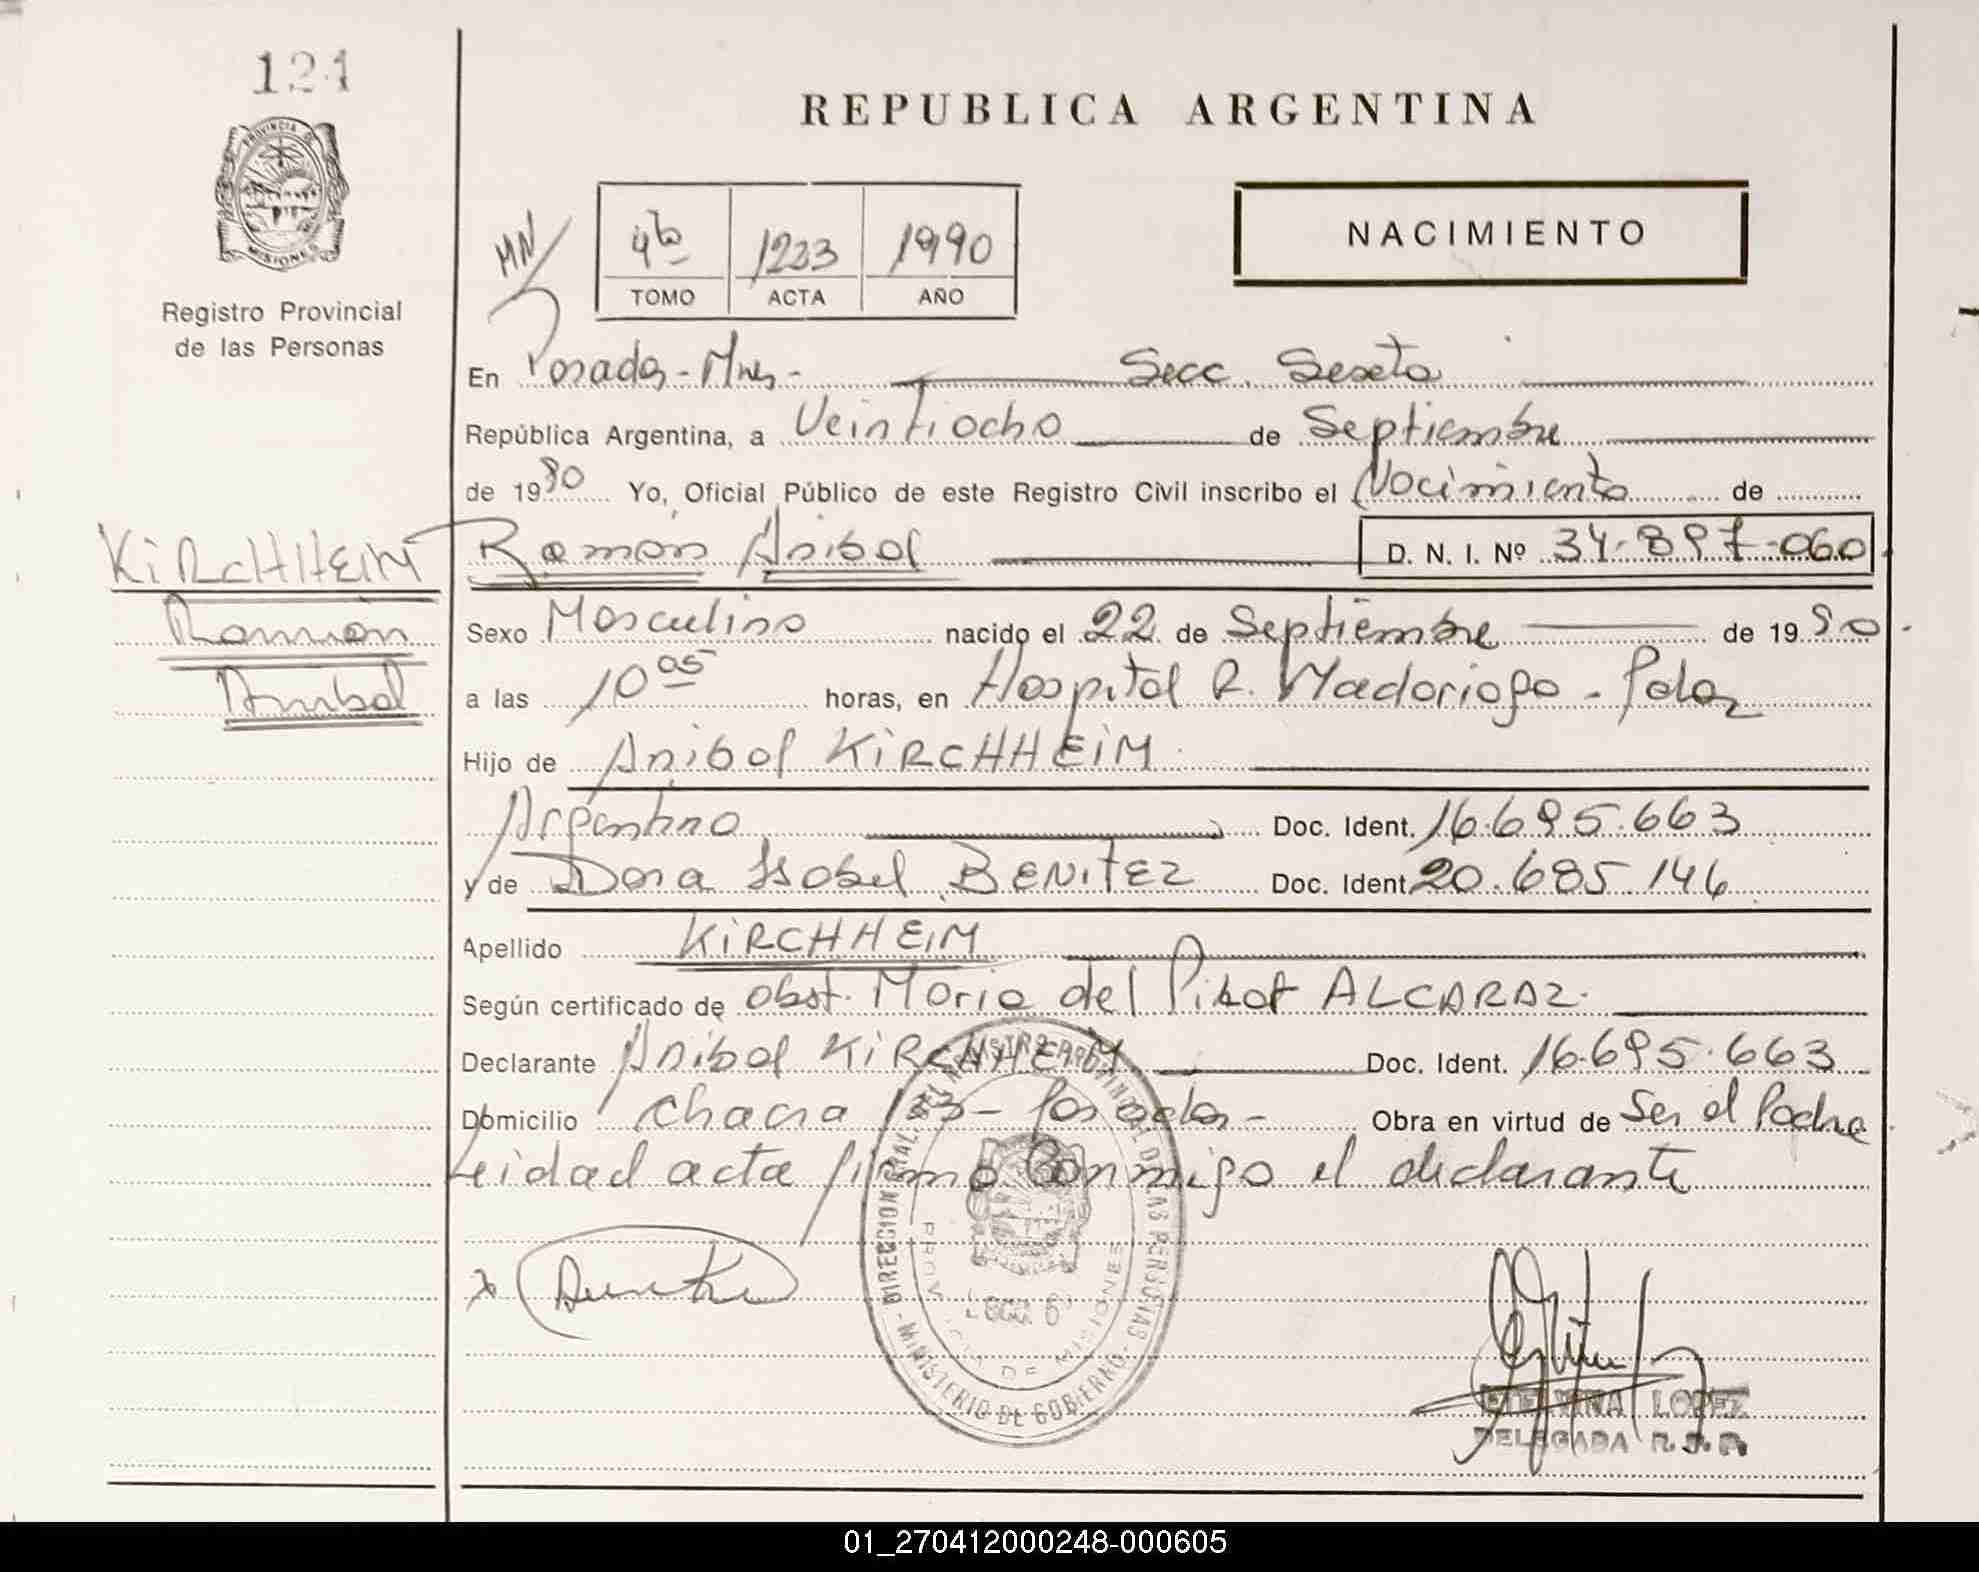 124
REPUBLICA ARGENTINA
PROVINCIA DE
MISIONES
Registro Provincial
de las Personas
MN
4to 1223 1990
TOMO ACTA AÑO
NACIMIENTO
En Posadas - Mnes - Secc. Sexta
República Argentina, a Veintiocho de Septiembre
de 1990 Yo, Oficial Público de este Registro Civil inscribo el Nacimiento de
KIRCHHEIM
Ramón
Anibal
Ramón Anibal D. N. I. Nº 34.897.060
Sexo Masculino nacido el 22 de Septiembre de 1990.
a las 10 05 horas, en Hospital R. Madariaga - Pdas
Hijo de Anibal KIRCHHEIM
Argentino Doc. Ident. 16.695.663
y de Dora Isabel BENITEZ Doc. Ident. 20.685.146
Apellido KIRCHHEIM
Según certificado de obst. Maria del Pilar ALCARAZ.
Declarante Anibal KIRCHHEIM Doc. Ident. 16.695.663
Domicilio Chacra 133 - Posadas - Obra en virtud de Ser el Padre
Leidad acta firmo Conmigo el declarante
DIRECCION GRAL. DEL REGISTRO PROVINCIAL DE LAS PERSONAS - MINISTERIO DE GOBIERNO -
PROVINCIA DE MISIONES
LOPEZ
DELEGADA R.P.P.
01_270412000248-000605